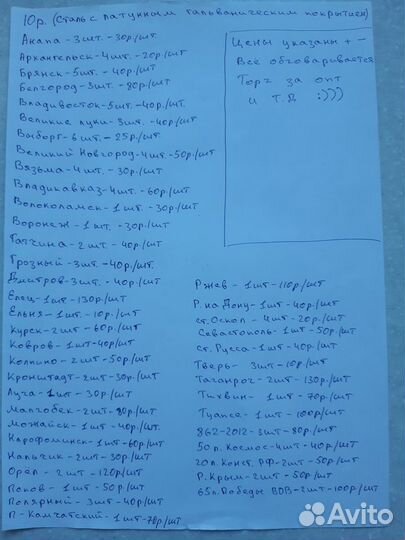 10р. (Сталь с латунным гальваническим покрытием)
Анапа - 3шт. - 30р./шт.
Архангельск - 4шт. - 20р./шт
Брянск - 5шт. - 40р./шт
Белгород - 3шт. - 80р./шт
Владивосток - 5шт. - 40р./шт.
Великие луки - 3шт. - 40р./шт
Выборг - 6шт. - 25р./шт
Великий Новгород - 4шт. - 50р./шт
Вязьма - 4шт. - 30р./шт
Владикавказ - 4шт. - 60р./шт
Волоколамск - 1шт. - 30р./шт
Воронеж - 1шт. - 30р./шт
Гатчина - 2шт. - 40р./шт
Грозный - 3шт. - 40р./шт.
Дмитров - 3шт. - 40р./шт
Елец - 1шт - 130р./шт
Ельня - 1шт. - 10р./шт
Курск - 2шт - 60р./шт
Ковров - 1шт - 40р/шт
Колпино - 2шт - 50р/шт
Кронштадт - 2шт - 30р./шт
Луга - 1шт - 30р./шт
Малгобек - 2шт - 80р/шт
Можайск - 1шт - 40р/шт.
Нарофоминск - 1шт - 60р/шт
Нальчик - 2шт - 30р/шт
Орел - 2шт - 120р/шт
Псков - 1шт - 50р./шт
Полярный - 3шт - 40р/шт
П-Камчатский - 1шт - 70р/шт
Цены указаны + -
Всё обговаривается
Торг за опт
и т.д :)))
Ржев - 1шт - 110р/шт
Р.на Дону - 1шт - 40р/шт
ст.Оскол - 4шт - 20р./шт
Севастополь - 1шт - 50р/шт
ст.Русса - 1шт - 40р/шт
Тверь - 3шт - 10р/шт
Таганрог - 2шт - 130р/шт
Тихвин - 1шт - 70р/шт
Туапсе - 1шт - 100р/шт
862-2012 - 3шт - 80р/шт
50л. Космос - 4шт - 40р/шт
20л. Конст. РФ - 2шт - 50р/шт
Р. Крым - 2шт - 50р/шт
65л. Победы ВОВ - 2шт - 100р/шт
Avito